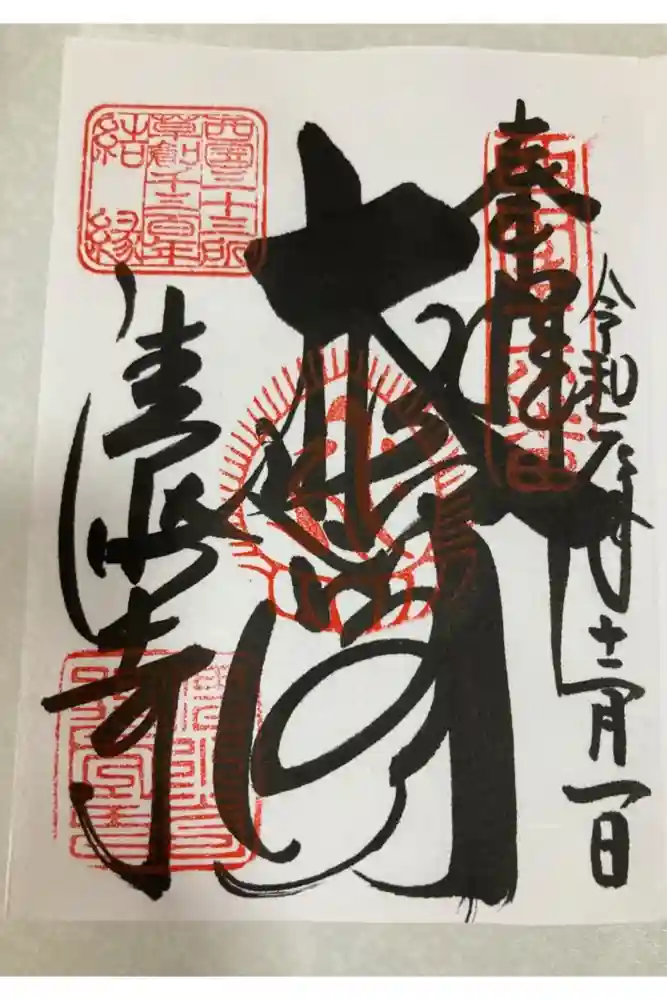 奉拝
令和元年十二月一日
大悲閣
清水寺
西國三十三所
草創千三百年
結縁